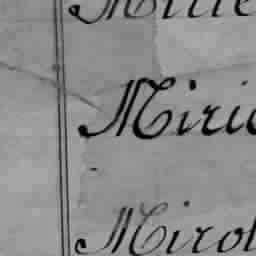 Miric
Mirol